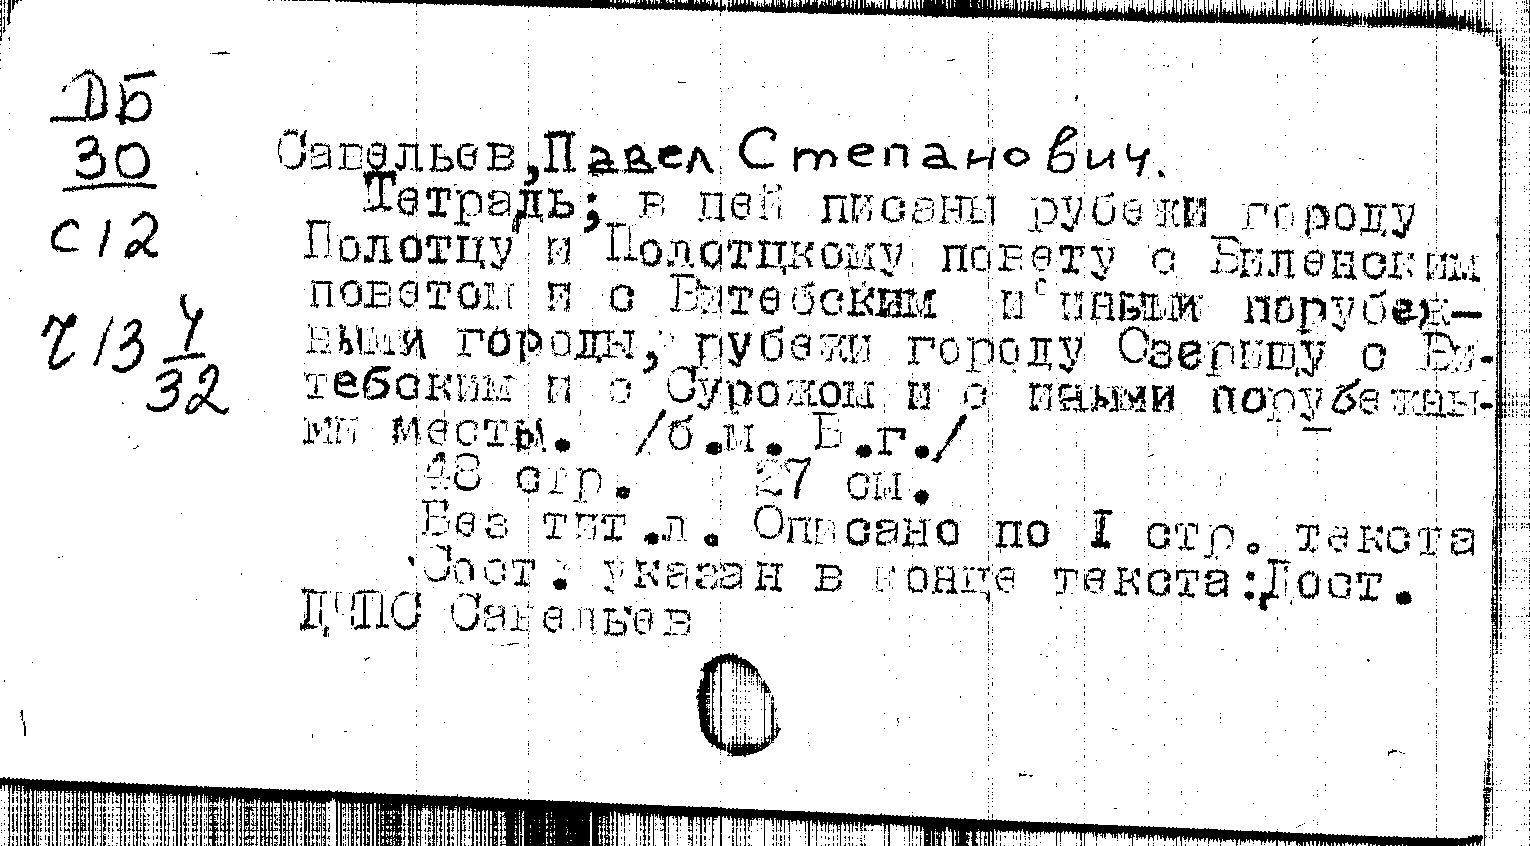 ДБ
30
С12
Ч13 4/32
Савельев, Павел Степанович.
Тетрадь; в ней писаны рубежи городу
Полотцу и Полотцкому повету с Виленским
поветом и с Витебским и с иными порубеж-
ными городы, рубежи городу Озерищу с Ви-
тебским и с Сурожом и с иными порубежны-
ми месты. /б.м. Б.г./
48 стр. 27 см.
Без тит.л. Описано по I стр. текста
Сост. указан в конце текста: Дост.
П.С Савельев